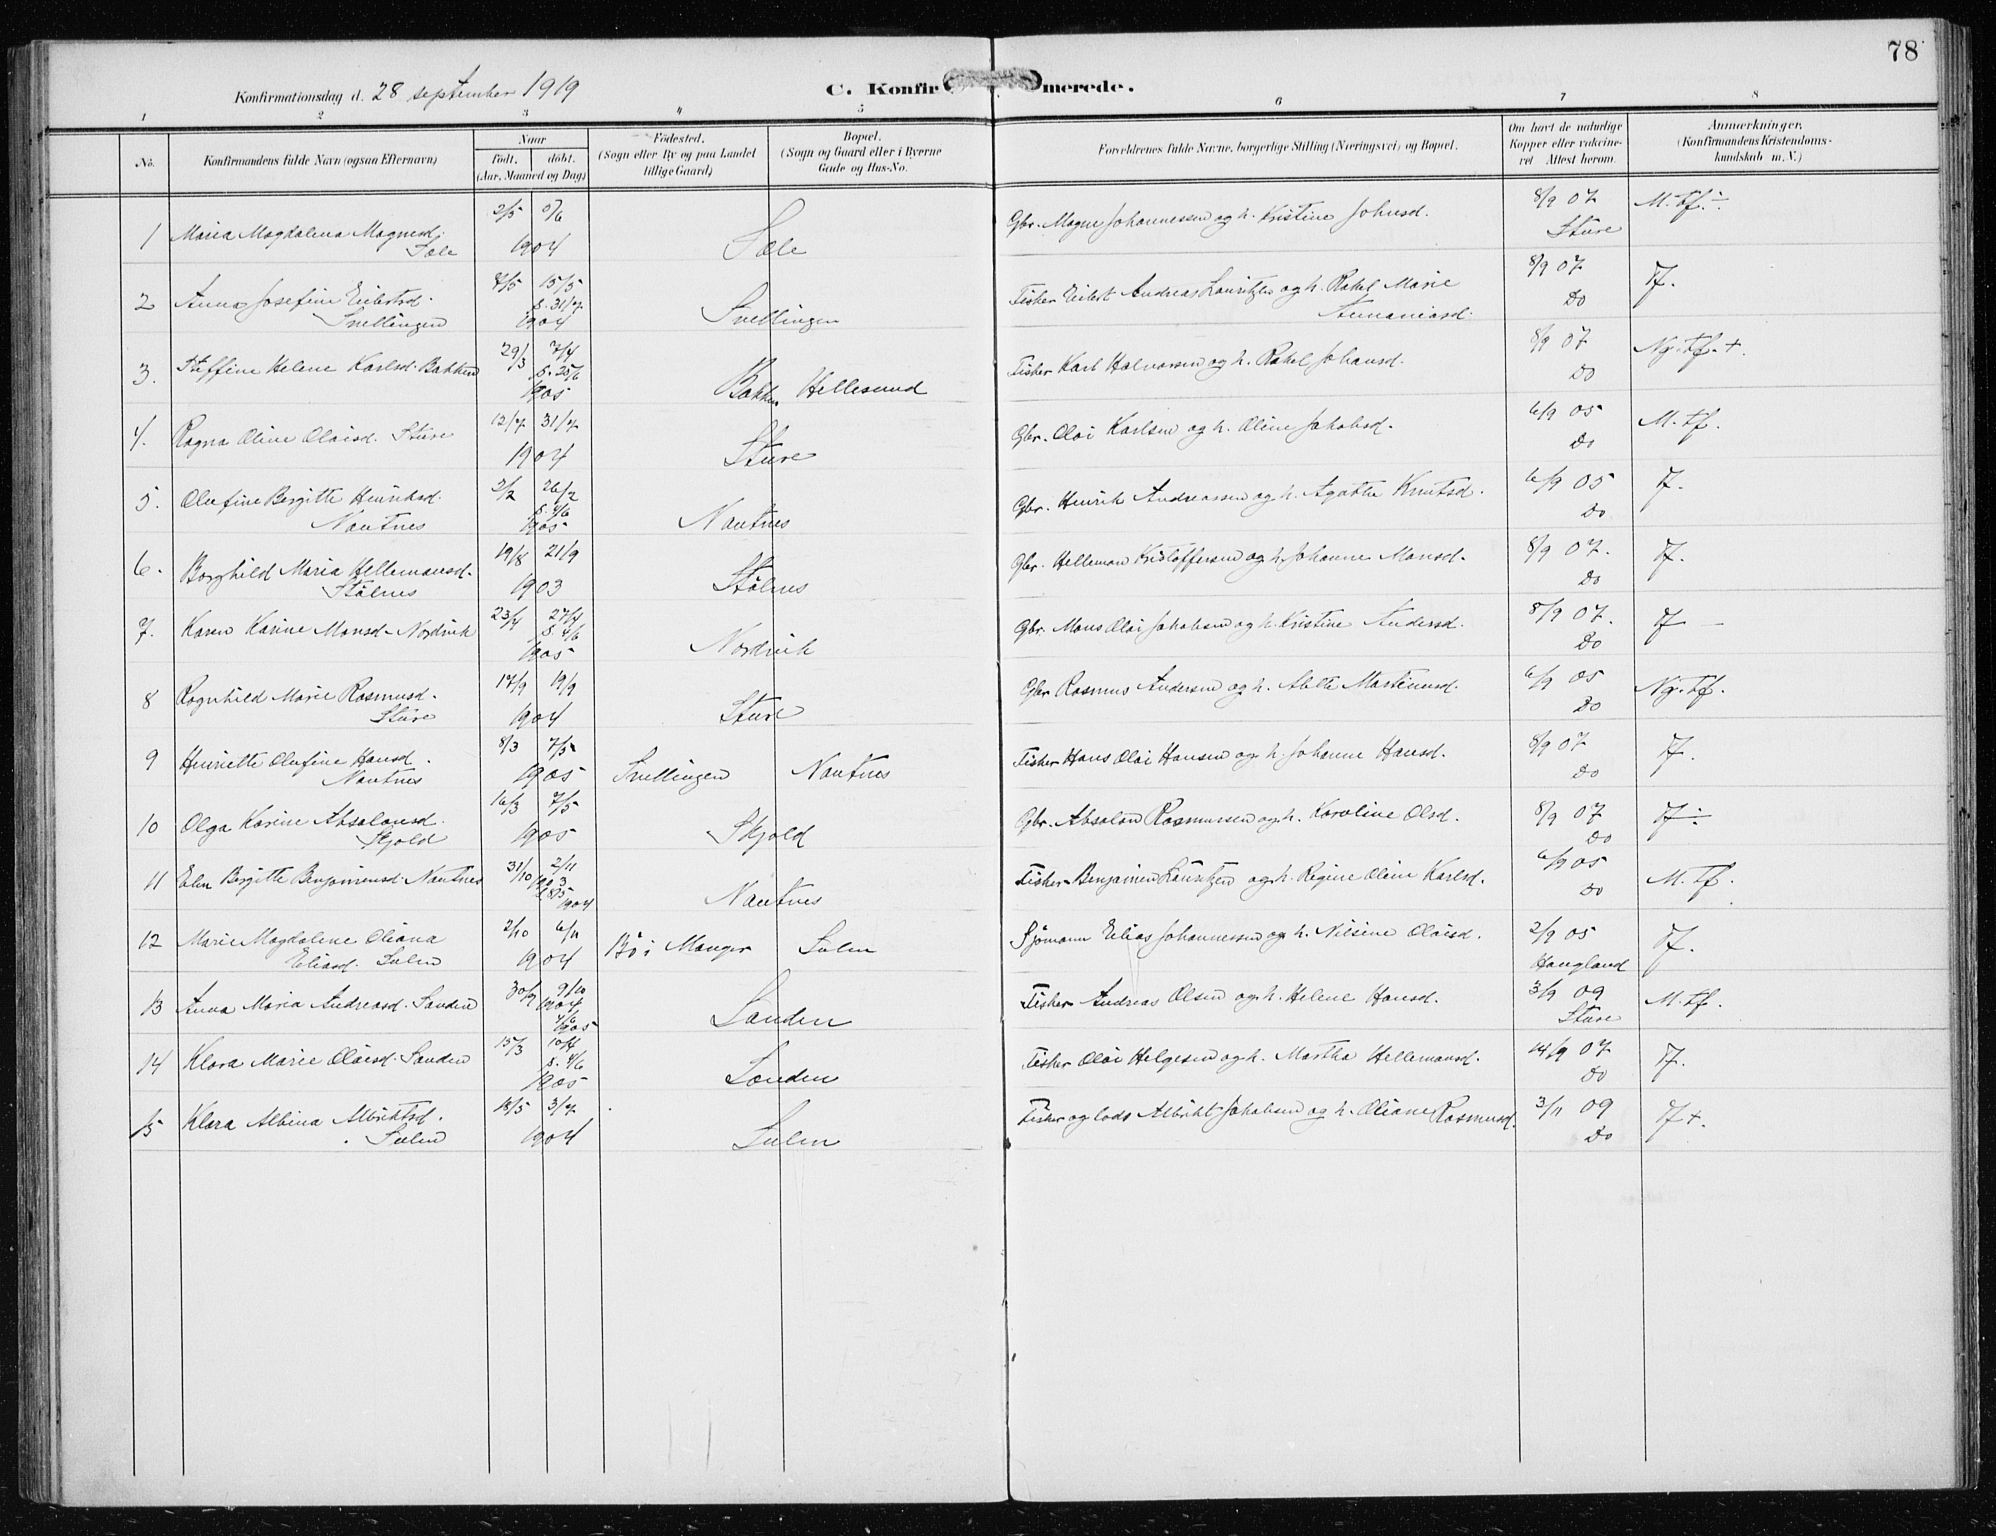 78
Konfirmationsdag d. 28 september 1919
C. Konfirmerede.
1 2 3 4 5 6 7 8
No.
Konfirmandens fulde Navn (ogsaa Efternavn)
Naar
født. døbt.
(Aar, Maaned og Dag)
Fødested.
(Sogn eller By og paa Landet
tillige Gaard)
Bopæl.
(Sogn og Gaard eller i Byerne
Gade og Hus-No.
Forældrenes fulde Navne, borgerlige Stilling (Næringsvei) og Bopæl.
Om havt de naturlige
Kopper eller vakcine-
ret Attest herom.
Anmærkninger.
(Konfirmandens Kristendoms-
kundskab m. V.)
1 Maria Magdalena Magnesd. Sæle 2/5 1904 Sæle Gbr. Magne Johannessen og h. Kristine Johnsd. 8/9 07 Sture M.tf. ÷
2 Anna Josefine Eilertsd. Snellingen 4/5 15/5 k. 31/7 1904 Snellingen Fisker Eilert Andreas Lauritzen og h. Rakel Marie Annaniasd. 8/9 07 Do Tf.
3. Steffine Helene Karlsd. Bakken 29/3 7/4 k. 25/6 1905 Bakken Hellesund Fisker Karl Halvorsen og h. Rakel Johansd. 8/9 07 Do Ng. tf. +
4. Ragna Oline Olaisd. Sture 12/7 31/7 1904 Sture Gbr. Olai Karlsen og h. Oline Jakobsd. 6/9 05 Do M. tf.
5. Olufine Bergitte Henriksd. Nautnes 2/2 26/2 k. 4/6 1905 Nautnes Gbr. Henrik Andreassen og h. Agathe Knutsd. 6/9 05 Do Tf.
6. Borghild Maria Hellemansd. Stålnes 19/8 21/9 1903 Stålnes Gbr. Helleman Kristoffersen og h. Johanne Monsd. 8/9 07. Do Tf.
7. Karen Karine Monsd. Nordvik 23/4 27/4 k. 4/6 1905 Nordvik Gbr. Mons Olai Jakobsen og h. Kristine Andersd. 8/9 07. Do Tf —
8 Ragnhild Marie Rasmusd. Sture 17/9 19/9 1904 Sture Gbr. Rasmus Andersen og h. Martinusd. 6/9 05 Do Ng. tf.
9 Henriette Olufine Hansd. Nautnes 8/3 7/5 1905 Snellingen Nautnes Fisker Hans Olai Hansen og h. Johanne Hansd. 8/9 07 Do Tf.
10 Olga Karine Absalonsd. Skjold 16/3 7/5 1905 Skjold Gbr. Absalon Rasmussen og h. Karoline Olsd. 8/9 07 Do Tf ÷
11 Elen Bergitte Benjaminsd. Nautnes 31/10 2/11 1903 1904 Nautnes Fisker Benjamin Lauritzen og h. Regine Oline Karlsd. 6/9 05 Do M. tf.
12 Marie Magdalene Oliana Eliasd. Sulen 2/10 6/11 1904 Bø i Manger Sulen Sjømann Elias Johannessen og h. Nilsine Olaisd. 2/9 05 Haugland Tf.
13 Anna Maria Andreasd. Sanden 30/9 9/10 1904 4/6 1905 Sanden Fisker Andreas Olsen og h. Helene Hansd. 3/9 09 Sture M. tf.
14 Klara Marie Olaisd. Sanden 15/3 10/4 k. 4/6 1905 Sanden Fisker Olai Helgesen og h. Martha Hellemansd. 14/9 07 Do Tf.
15 Klara Albina Albriktsd. Sulen 18/5 3/7 1904 Sulen Fisker og lods Albrikt Jakobsen og h. Oliane Rasmusd. 3/11 09 Do Tf +.